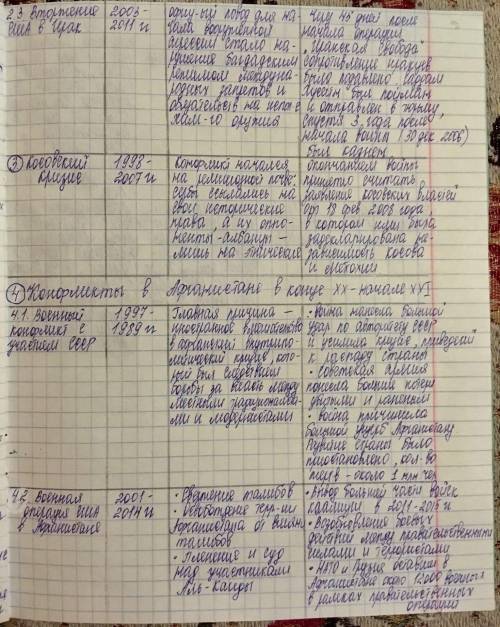 2.3 Вторжение
США в Ирак
2003-
2011 г
повод для на-
чала вооруженной
агрессии стало на-
рушение багдадским
режимом междуна-
родных запретов и
обязательств на
оружия
45 дней после
начала операции
"Иракская свобода"
сопротивление иракцев
было подавлено, Саддам
Хусейн был пойман
и отправлен в тюрьму,
спустя 3 года после
начала войны (30 дек 2006)
был казнен
3 Косовский
кризис
1998-
2007 гг
Конфликт начался
на религиозной почве.
Сербы ссылались на
свои исторические
права, а их оппо-
ненты-албанцы –
лишь на этнические
Окончанием войны
принято считать
заявление косовских властей
от 18 фев 2008 года
в котором ими была
задекларирована не-
зависимость Косова
и Метохии
4 Конфликты в Афганистане в конце XX - начале XVI
4.1. Военный
конфликт с
участием СССР
1997-
1989 гг
Главная причина –
иностранное вмешательство
в афганский внутрипо-
литический кризис, кото-
рый был следствием
борьбы за власть между
местными традиционалиста-
ми и модернистами
• Война нанесла большой
удар по авторитету СССР
и усилила кризис, приведший
к распаду страны
• Советская армия
понесла большие потери
убитыми и ранеными
• Война причинила
большой ущерб Афганистану
Развитие страны было
приостановлено, кол-во
жертв – около 1 млн чел
4.2. Военная
операция США
в Афганистане
2001-
2014 гг
• Свержение талибов
• Освобождение терр-ии
Афганистана от влияния
талибов
• Пленение и суд
над участниками
Аль-Каиды
• Вывод большей части войск
коалиции в 2011-2015 гг
• Возобновление боевых
действий между правительственными
силами и террористами
• НАТО и оставили в
Афганистане около 12000 военных
в рамках правительственных
операций